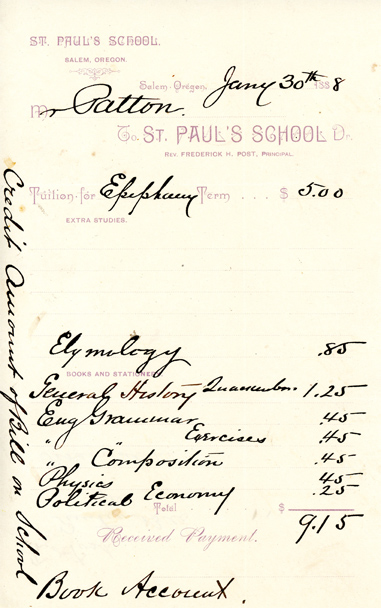 ST. PAUL'S SCHOOL.
SALEM, OREGON.
Salem, Oregon, Jany 30th 1888
Mr Patton.
To ST. PAUL'S SCHOOL Dr.
REV. FREDERICK H. POST, PRINCIPAL.
Tuition for Epiphany Term . . . $ 5.00
EXTRA STUDIES.
Etymology .85
BOOKS AND STATIONERY
General History 1.25
Eng Grammar .45
" " Exercises .45
" Composition .45
Physics .45
Political Economy .25
Total $ 9.15
Received Payment.
Credit Amount of Bill on School
Book Account.